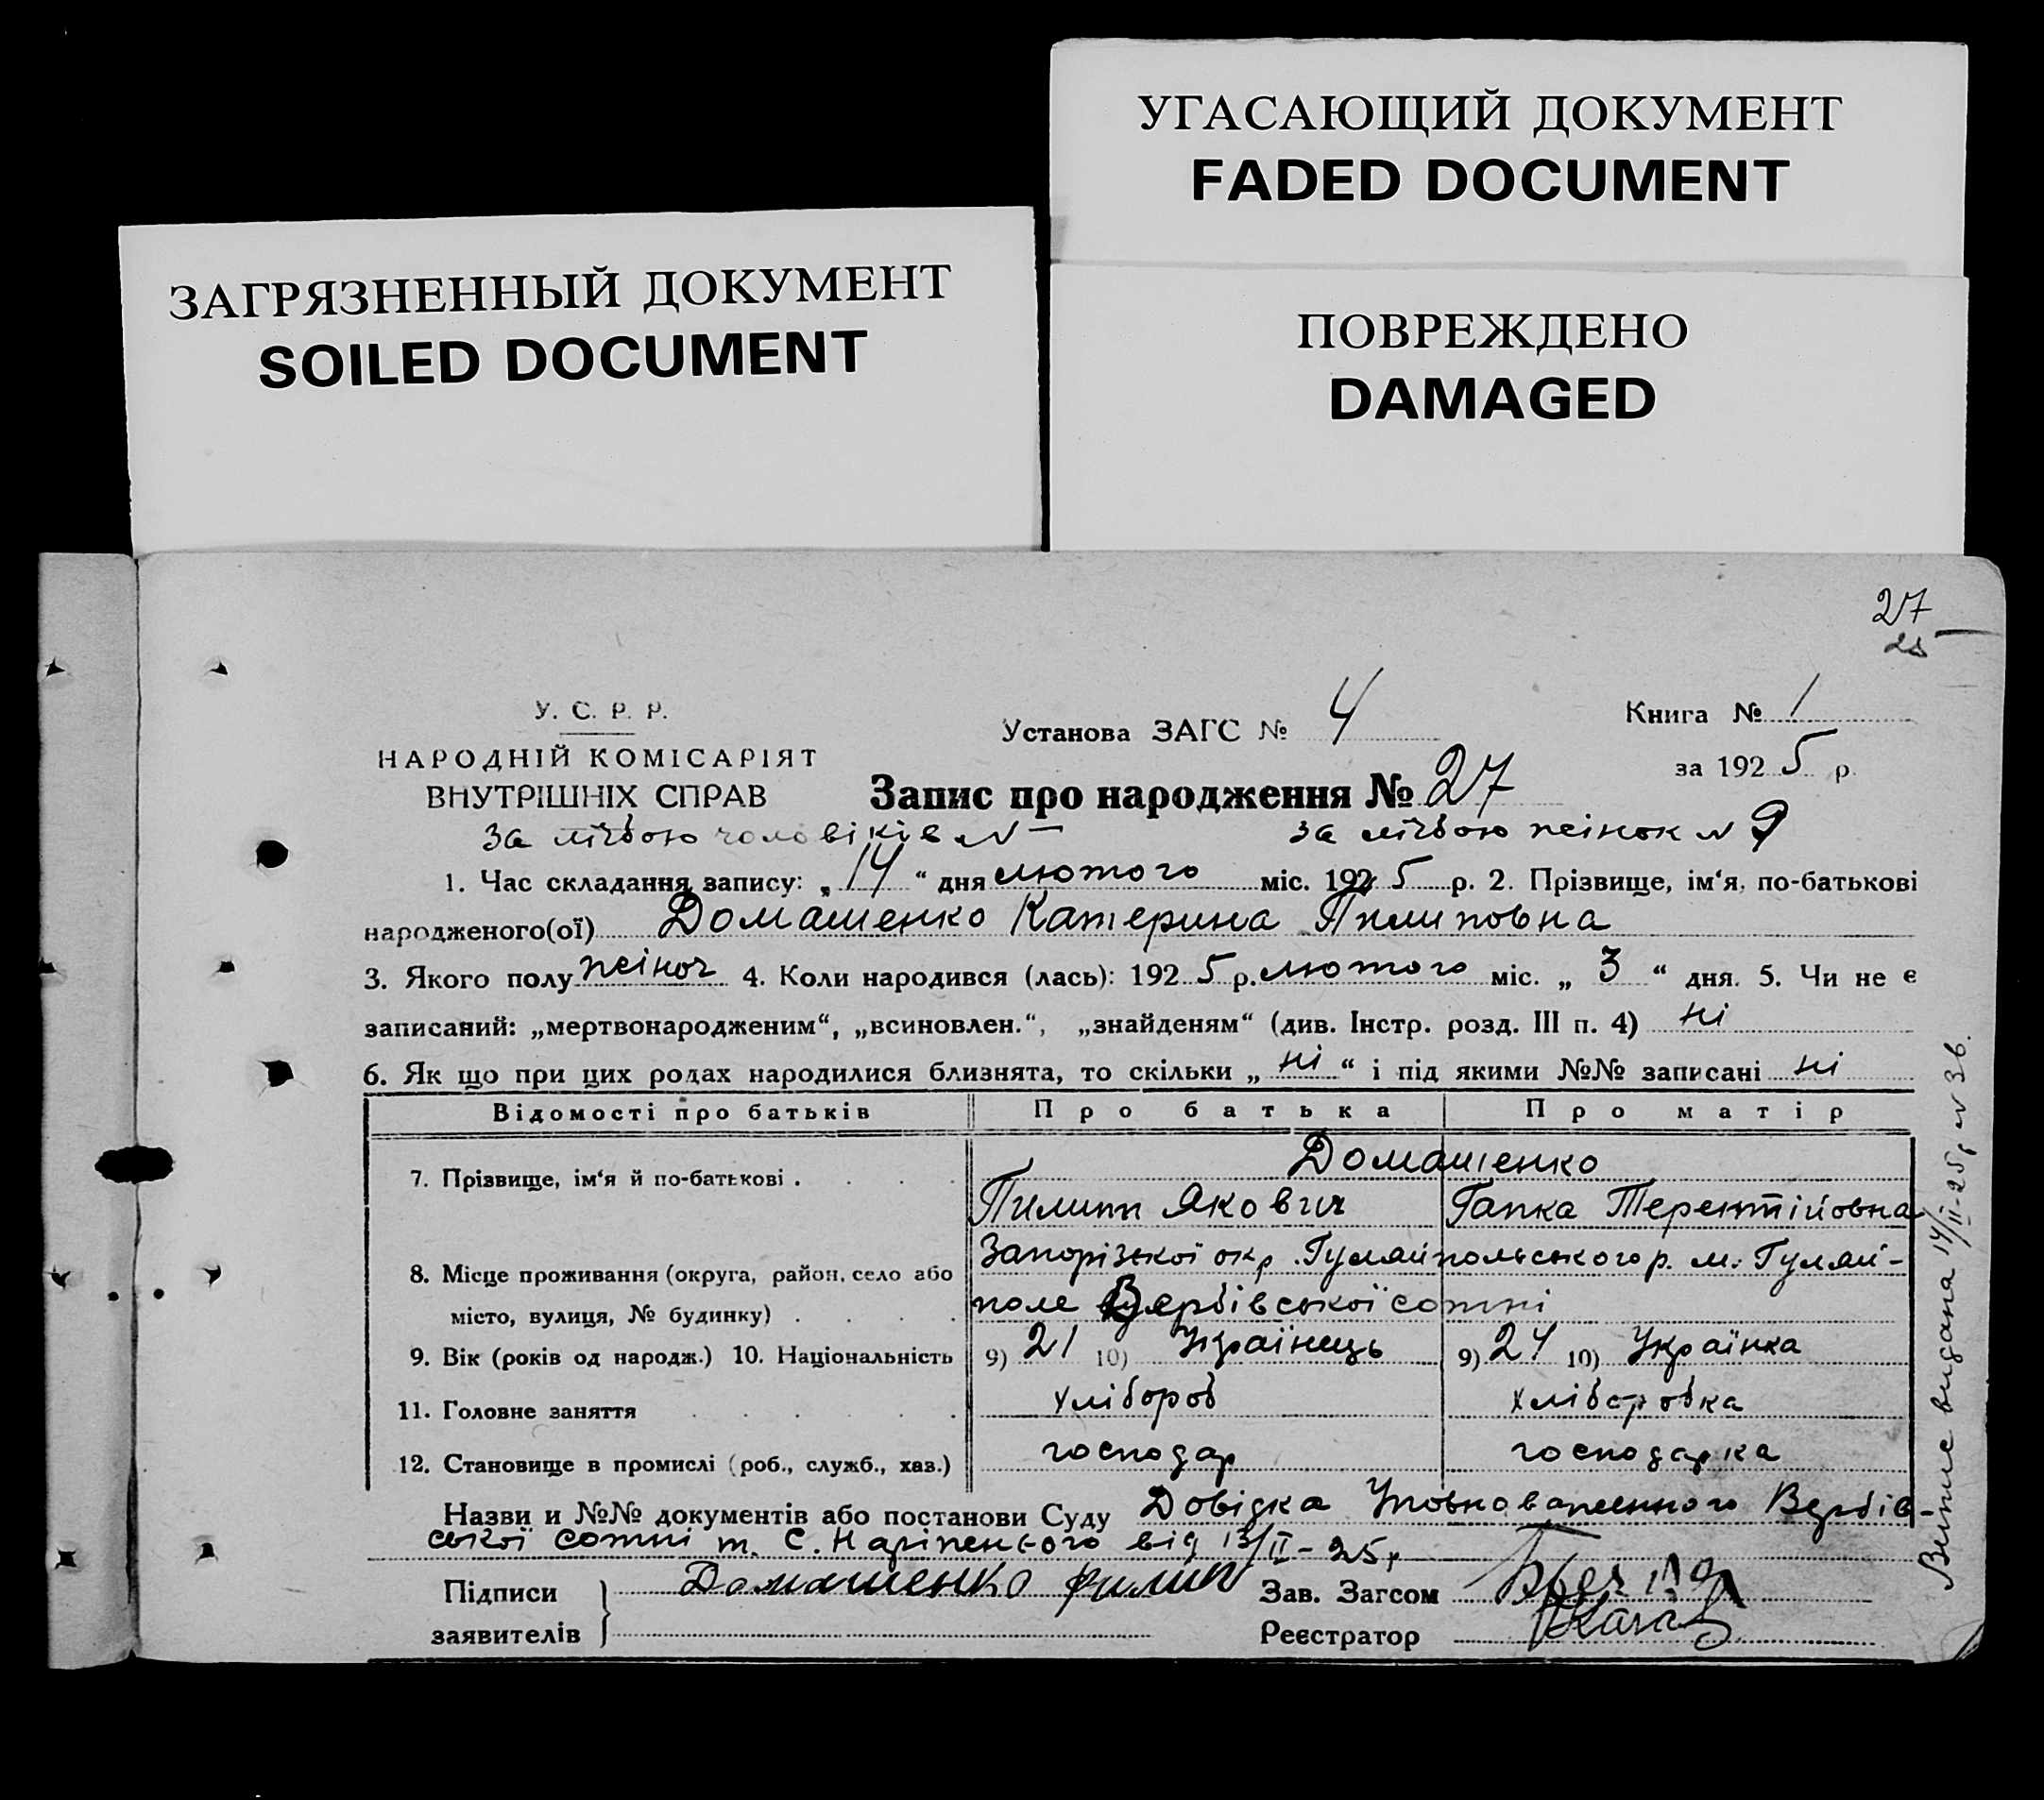 УГАСАЮЩИЙ ДОКУМЕНТ
FADED DOCUMENT
ЗАГРЯЗНЕННЫЙ ДОКУМЕНТ
SOILED DOCUMENT
ПОВРЕЖДЕНО
DAMAGED
27
25
У. С. Р. Р.
НАРОДНІЙ КОМІСАРІЯТ
ВНУТРІШНІХ СПРАВ
Установа ЗАГС № 4
Книга № 1
за 1925 р.
Запис про народження № 27
за лічбою чоловіків № — за лічбою жінок № 9
1. Час складання запису: „14“ дня лютого міс. 1925 р. 2. Прізвище, ім‘я, по-батькові
народженого(ої) Домашенко Катерина Пилиповна
3. Якого полу жіноч 4. Коли народився (лась): 1925 р. лютого міс. „3“ дня. 5. Чи не є
записаний: „мертвонародженим“, „всиновлен.“, „знайденям“ (див. Інстр. розд. III п. 4) ні
6. Як що при цих родах народилися близнята, то скільки „ні“ і під якими №№ записані ні
Відомості про батьків Про батька Про матір
7. Прізвище, ім‘я й по-батькові . Домашенко
Пилип Якович Гапка Терентійовна
8. Місце проживання (округа, район, село або Запорізької окр. Гуляйпольського р. м. Гуляй-
місто, вулиця, № будинку) поле Вербівської сотні
9. Вік (років од народж.) 10. Національність 9) 21 10) Українець 9) 24 10) Українка
11. Головне заняття хлібороб хліборобка
12. Становище в промислі (роб., служб., хаз.) господар господарка
Назви и №№ документів або постанови Суду Довідка Уповноваженного Вербів-
ської сотні т. С. від 13/II-25р
Підписи Домашенко Филип Зав. Загсом
заявителів Реєстратор
Витяг видана 14/II-25р № 36.